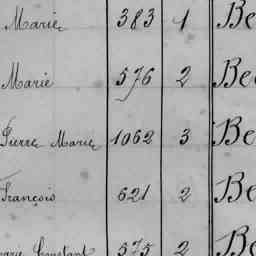 Marie 383 1 Be
Marie 576 2 Be
Pierre Marie 1062 3 Be
François 621 2 Be
Marie Constant 575 2 Be